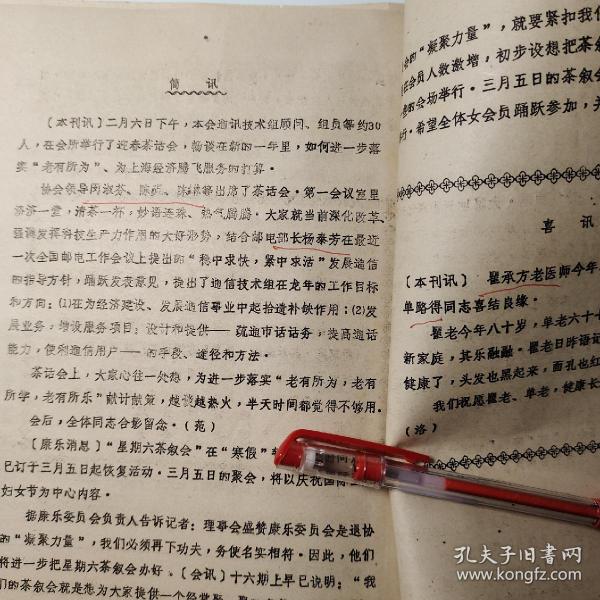 简 讯
〔本刊讯〕二月六日下午，本会通讯技术组顾问、组员等约30
人，在会所举行了迎春茶话会，畅谈在新的一年里，如何进一步落
实“老有所为”、为上海经济腾飞服务的打算。
协会领导闵淑芬、陈 等出席了茶话会。第一会议室里
济济一堂，清茶一杯，妙语连珠、热气腾腾。大家就当前深化改革、
强调发挥科技生产力作用的大好形势，结合邮电部长杨泰芳在最近
一次全国邮电工作会议上提出的“稳中求快，紧中求活”发展通信
的指导方针，踊跃发表意见，提出了通信技术组在龙年的工作目标
和方向：⑴在为经济建设、发展通信事业中起拾遗补缺作用；⑵发
展业务，增设服务项目；设计和提供——疏通市话话务，提高通话
能力，便利通信用户——的手段、途径和方法。
茶话会上，大家心往一处想，为进一步落实“老有所为，老有
所学，老有所乐”献计献策，越谈越热火，半天时间都觉得不够用。
会后，全体同志合影留念。（苑）
〔康乐消息〕“星期六茶叙会”在“寒假”
已订于三月五日起恢复活动。三月五日的聚会，将以庆祝国际
妇女节为中心内容。
据康乐委员会负责人告诉记者：理事会盛赞康乐委员会是退协
的“凝聚力量”，我们必须再下功夫，务使名实相符。因此，他们
将进一步把星期六茶叙会办好。〔会讯〕十六期上早已说明：“我
们的茶叙会就是想为大家提供一个经常聚
的“凝聚力量”，就要紧扣我们
在会员人数激增，初步设想把茶
的会场举行。三月五日的茶叙会
行。希望全体女会员踊跃参加，并
喜 讯
〔本刊讯〕瞿承方老医师今年
单路得同志喜结良缘。
瞿老今年八十岁，单老六十七
新家庭，其乐融融。瞿老日昨语记
健康了，头发也黑起来，面孔也红
我们祝愿瞿老、单老，健康长
（洛）
孔夫子旧书网
www.kongfz.com